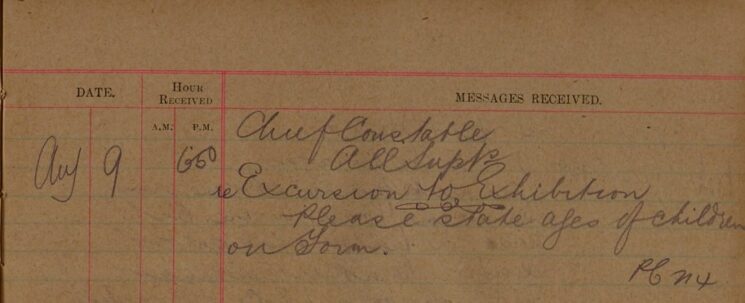 DATE. HOUR RECEIVED MESSAGES RECEIVED.
A.M. P.M.
Chief Constable
All Supts
Aug 9 650
re Excursion to Exhibition
Please state ages of children
on Form.
PC